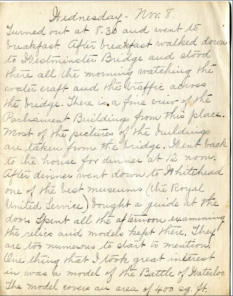 Wednesday - Nov. 8.
Turned out at 8.30 and went to
breakfast. After breakfast walked down
to Westminster Bridge and stood
there all the morning watching the
water craft and the traffic across
the bridge. There is a fine view of the
Parliament Buildings from this place.
Most of the pictures of the buildings
are taken from the bridge. Went back
to the house for dinner at 12 noon.
After dinner went down to Whitehead
one of the best museums (the Royal
United Service) bought a guide at the
door. Spent all the afternoon examining
the relics and models kept there. They
are too numerous to start to mention.
One thing that I took great interest
in was a model of the Battle of Waterloo
The model covers an area of 400 sq. ft.